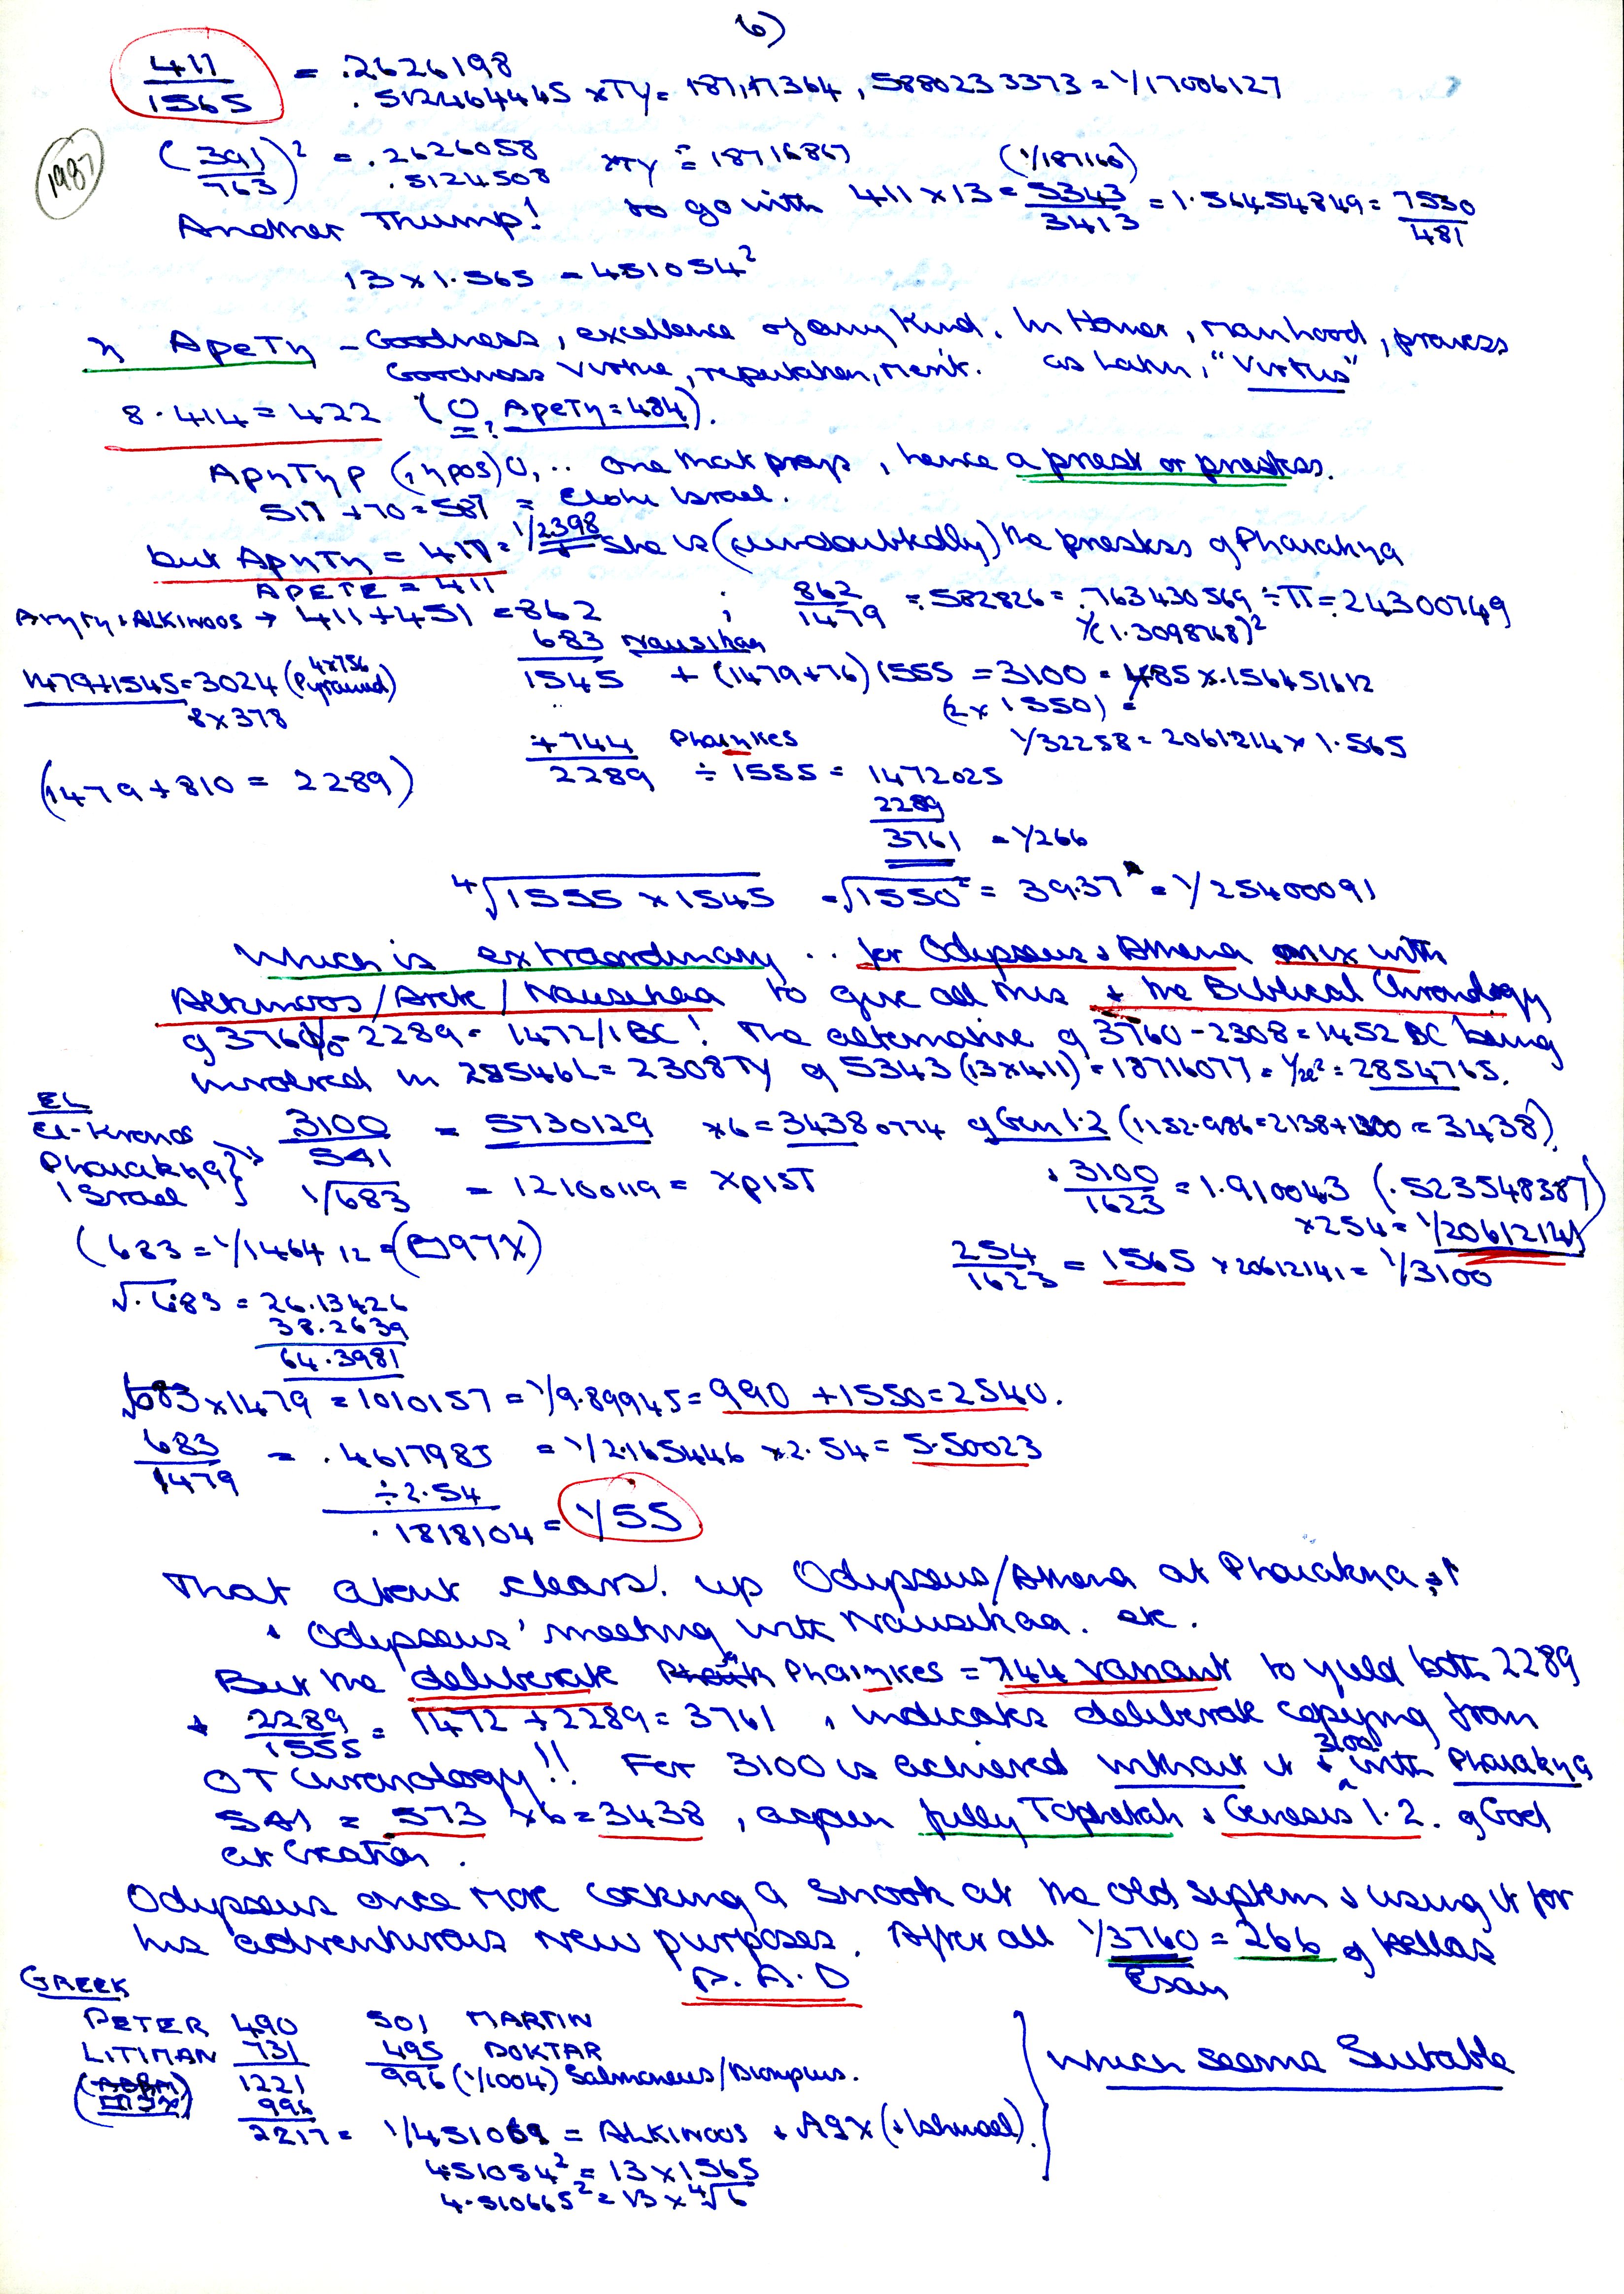 6)
411/1565 = .2626198
.512464445 xTy = 187,17364, 5880233373 = 1/17006127
1987
(391/763)² = .2626058 xTy = 18716867 (1/187160)
.5124508
Another Thump! to go with 411 x 13 = 5343/3413 = 1.56454849 = 7530/481
13 x 1.565 = 451054²
η ApeTη - Goodness, excellence of any kind. In Homer, manhood, prowess
Goodness Virtue, reputation, merit. as Latin, "Virtus"
8.414 = 422 (O ApeTη = 484).
=?
ApηTηp (,ηpos) O, .. one that prays, hence a priest or priestess.
517 + 70 = 587 = Elohi Israel.
but ApηTη = 417 = 1/2398 She is (undoubtedly) the priestess of Phaiakηa
APETE = 411
Aηη & ALKINOOS → 411 + 451 = 862 ; 862/1479 = .582826 = .763430569 ÷ π = .24300749
1/(1.3098768)²
683 Nausikaa
1479 + 1545 = 3024 (4x756 Pyramid) 1545 + (1479 + 76) 1555 = 3100 = 485 x .156451612
8 x 378 (2 x 1550) =
+ 744 Phaiηkes 1/32258 = 2061214 x 1.565
(1479 + 810 = 2289) 2289 ÷ 1555 = 1472025
2289
3761 = 1/266
⁴√1555 x 1545 = √1550² = 39.37 = 1/25400091
Which is extraordinary .. for Odysseus & Athena mix with
Alkinoos / Arete / Nausikaa to give all this & the Biblical Chronology
of 3760/1 - 2289 = 1472/1 BC! The alternative of 3760 - 2308 = 1452 BC being
involved in 28546L = 2308Ty of 5343 (13 x 411) = 18716077 = = 2854765.
EL
El-Kronos
Phaiakηa
Israel
3100/541 = 5730129 x 6 = 3438 0774 of Gen 1.2 (1152.986 = 2138 + 1300 = 3438)
1/√683 = 1210019 = xpisT
& 3100/1623 = 1.910043 (.523548387)
x 254 = 1/20612141
(683 = 1/1464 12 =
254/1623 = 1565 x 20612141 = 1/3100
√.683 = 26.13426
38.2639
64.3981
683 x 1479 = 1010157 = 1/9.89945 = 990 + 1550 = 2540.
683/1479 = .4617985 = 1/2.165446 x 2.54 = 5.50023
÷ 2.54
.1818104 = 1/55
That about clears up Odysseus/Athena at Phaiakηa
& Odysseus' meeting with Nausikaa. etc.
But the deliberate Phaiηkes = 744 variant to yield both 2289
& 2289/1555 = 1472 + 2289 = 3761, indicates deliberate copying from
OT chronology!! For 3100 is achieved without it & 3100 with Phaiakηa
541 = 573 x 6 = 3438, again fully Tophetah & Genesis 1.2. of God
at Creation.
Odysseus once more cocking a snook at the old system & using it for
his adventurous new purposes. After all 1/3760 = 266 of hellas
Esau
P.A.D
GREEK
PETER 490 501 MARTIN
LITIMAN 731 495 DOKTAR
1221 996 (1/1004) Salmoneus/Dionysus.
996
2217 = 1/451069 = ALKINOOS & (+ Ishmael).
451054² = 13 x 1565
4.510665² = 13 x ⁴√6
which seems Suitable